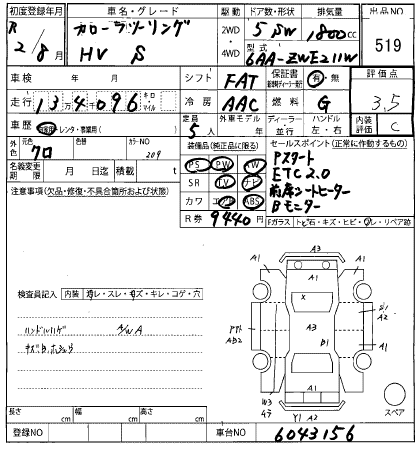 初度登録年月 車名・グレード 駆動 ドア数・形状 排気量 出品NO
R 2/8月 カローラツーリング 2WD・4WD 5 SW 1800cc 519
HV S 型式 6AA-ZWE211W
車検 年 月 シフト FAT 保証書 有・無 評価点
走行 134千096 キロ・マイル 冷房 AAC 燃料 G 3.5
車歴 レンタ・事業用( ) 定員 5人 外車モデル 年 ディーラー・並行 ハンドル 左・右 内装評価 C
元色 色替 カラーNO
クロ 209
名義変更期限 月 日迄 積載 t
注意事項(欠品・修復・不具合箇所および状態)
装備品(純正品に限る)
PS PW AW
SR TV ナビ
カワ エアB ABS
R券 9440円
セールスポイント(正常に作動するもの)
Pスタート
ETC2.0
前席シートヒーター
Bモニター
Fガラス トビ石・キズ・ヒビ・リペア跡
検査員記入 内装 スレ・キレ・コゲ・穴
ハンドルハゲ
A3
A1 A1
A1
X
A3
B1
A2
AB2
A1
A1
W3
Y1 A2
スペア
長さ cm 幅 cm 高さ cm
登録NO 車台NO 6043156